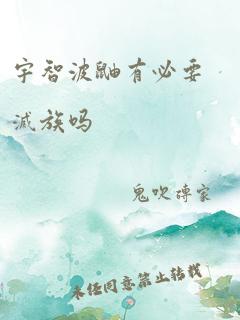 宇智波鼬有必要
减族吗
鬼吹砖家
未经同意禁止转载